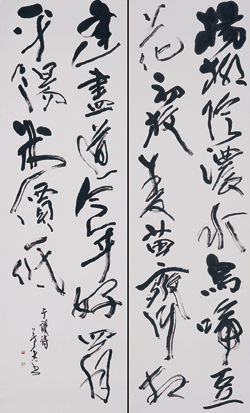 楊柳陰濃水鳥啼豆
花初放麥苗齊相
逢盡道今年好四月
平陽米價低
于謙詩